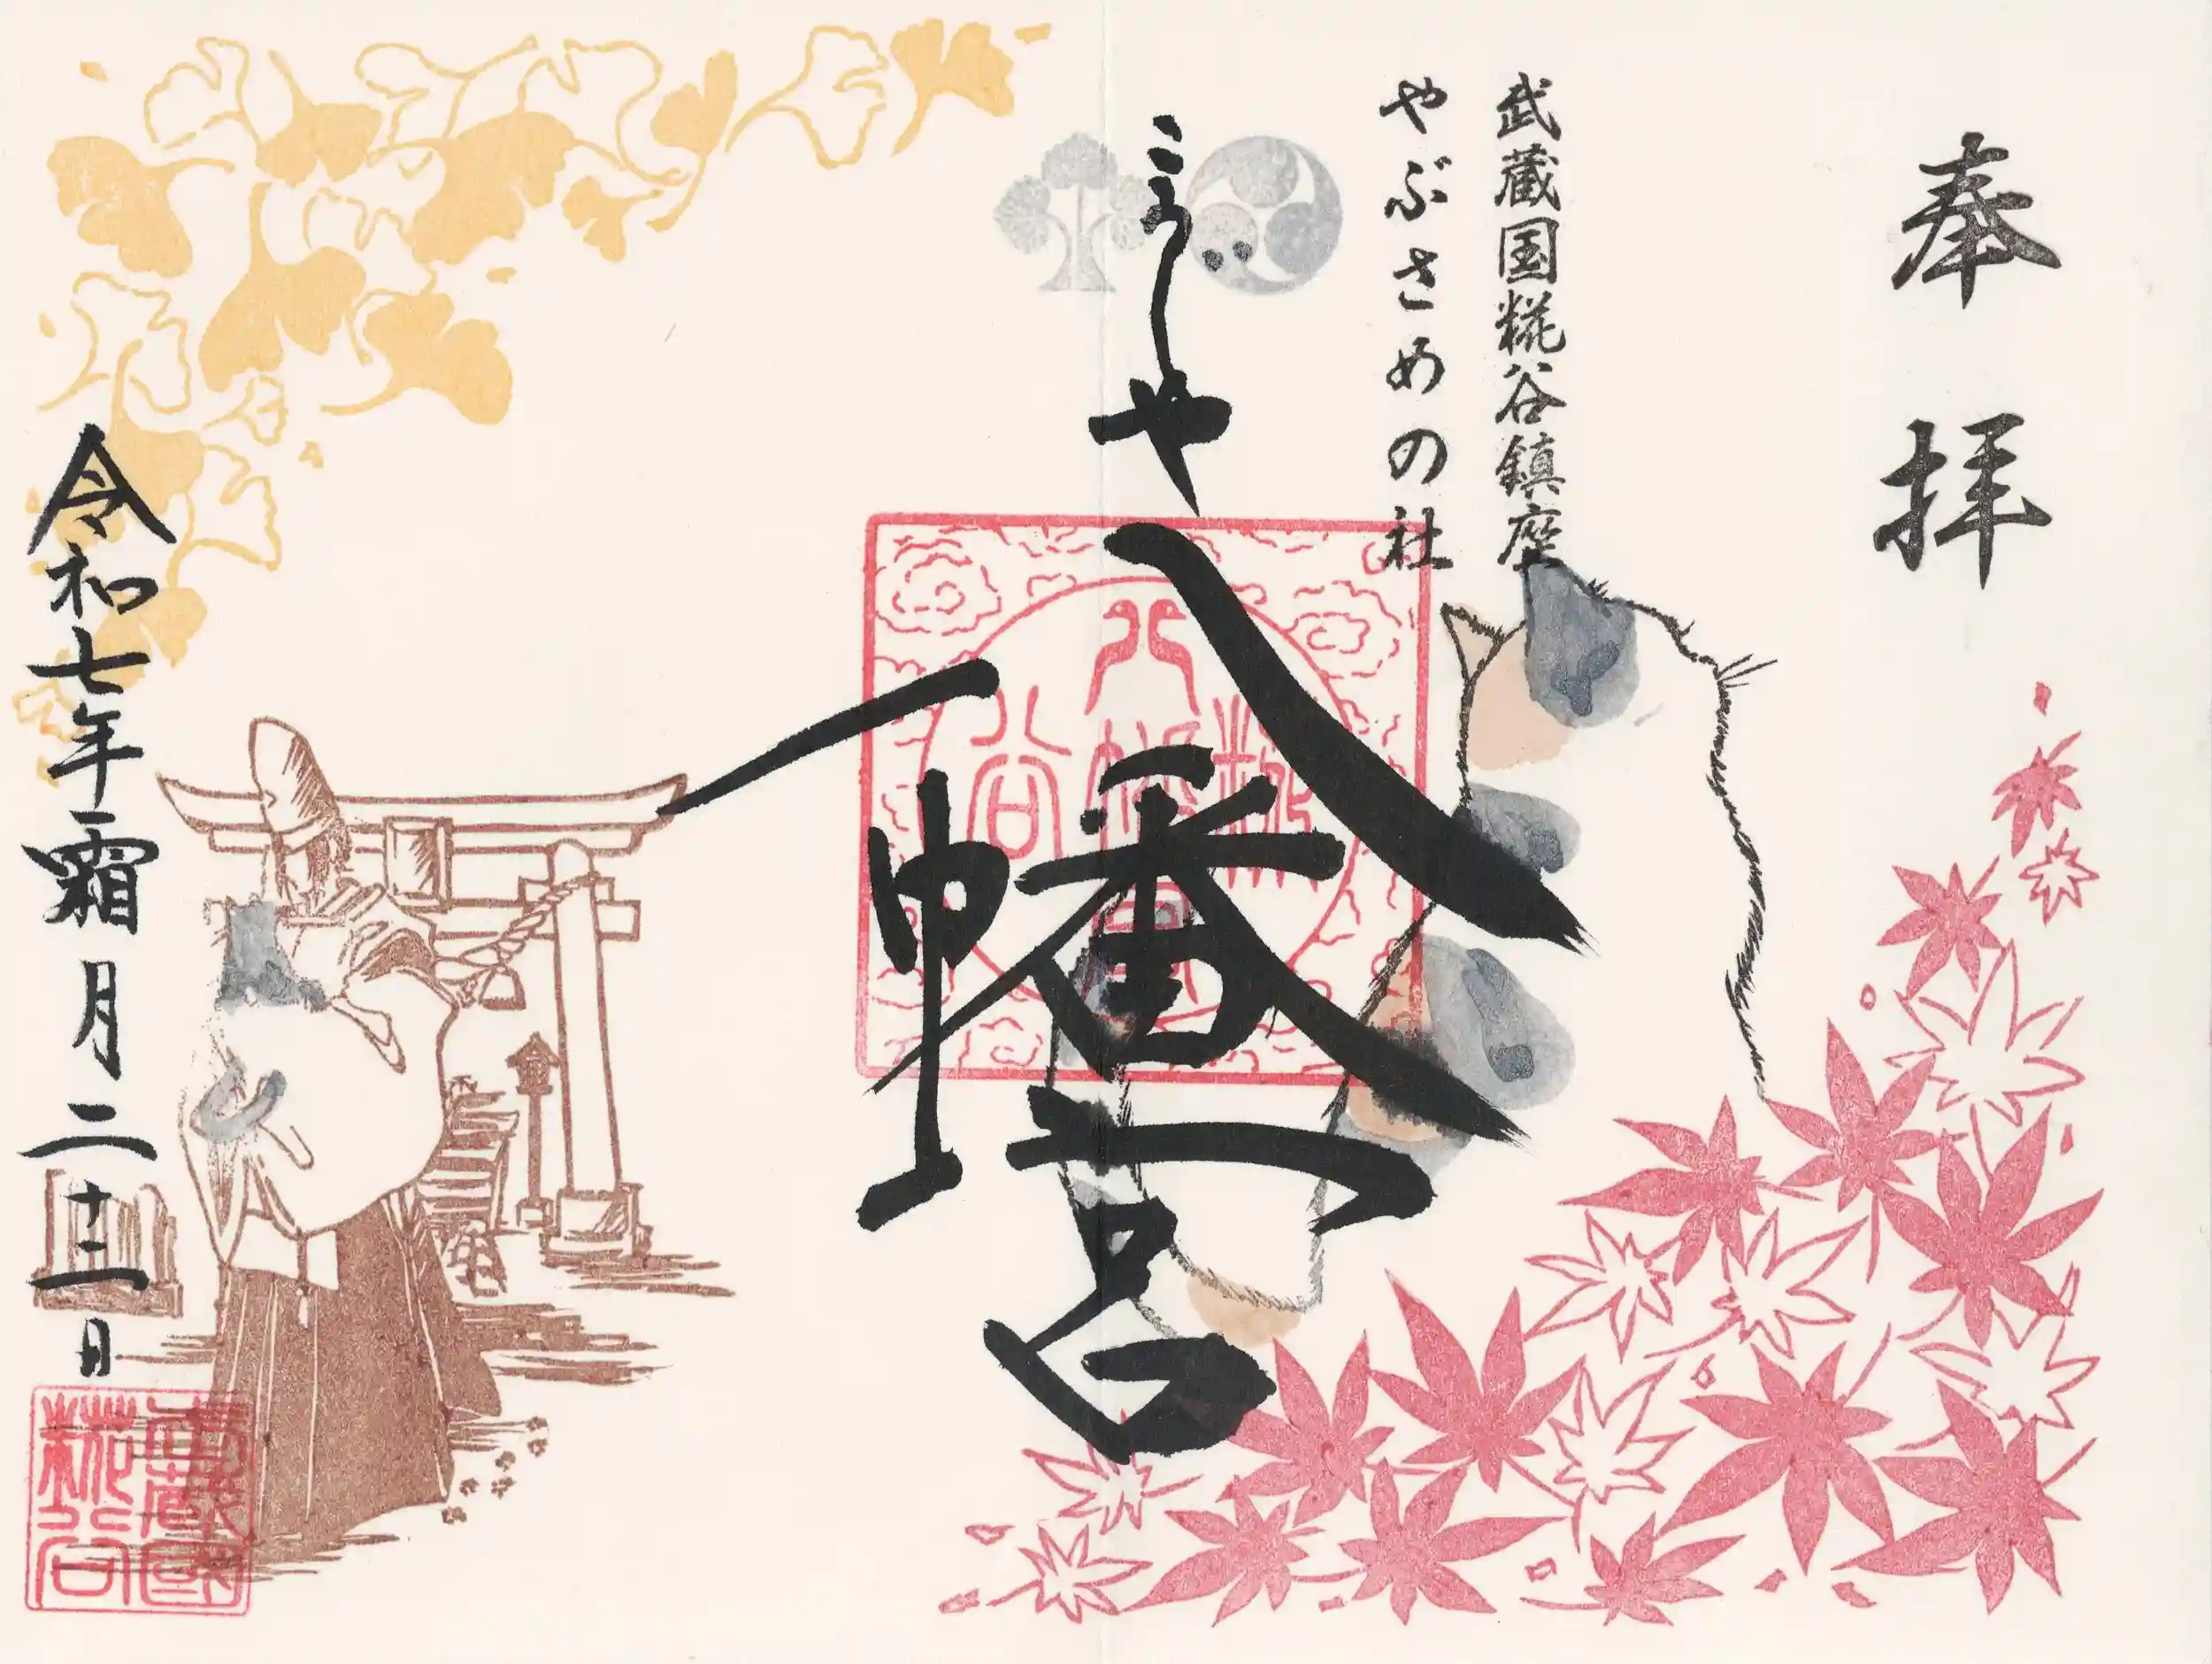 奉拝
武蔵国糀谷鎮座
やぶさめの社
こうしや
八幡宮
糀谷八幡宮
令和七年霜月二十二日
武蔵國
糀谷